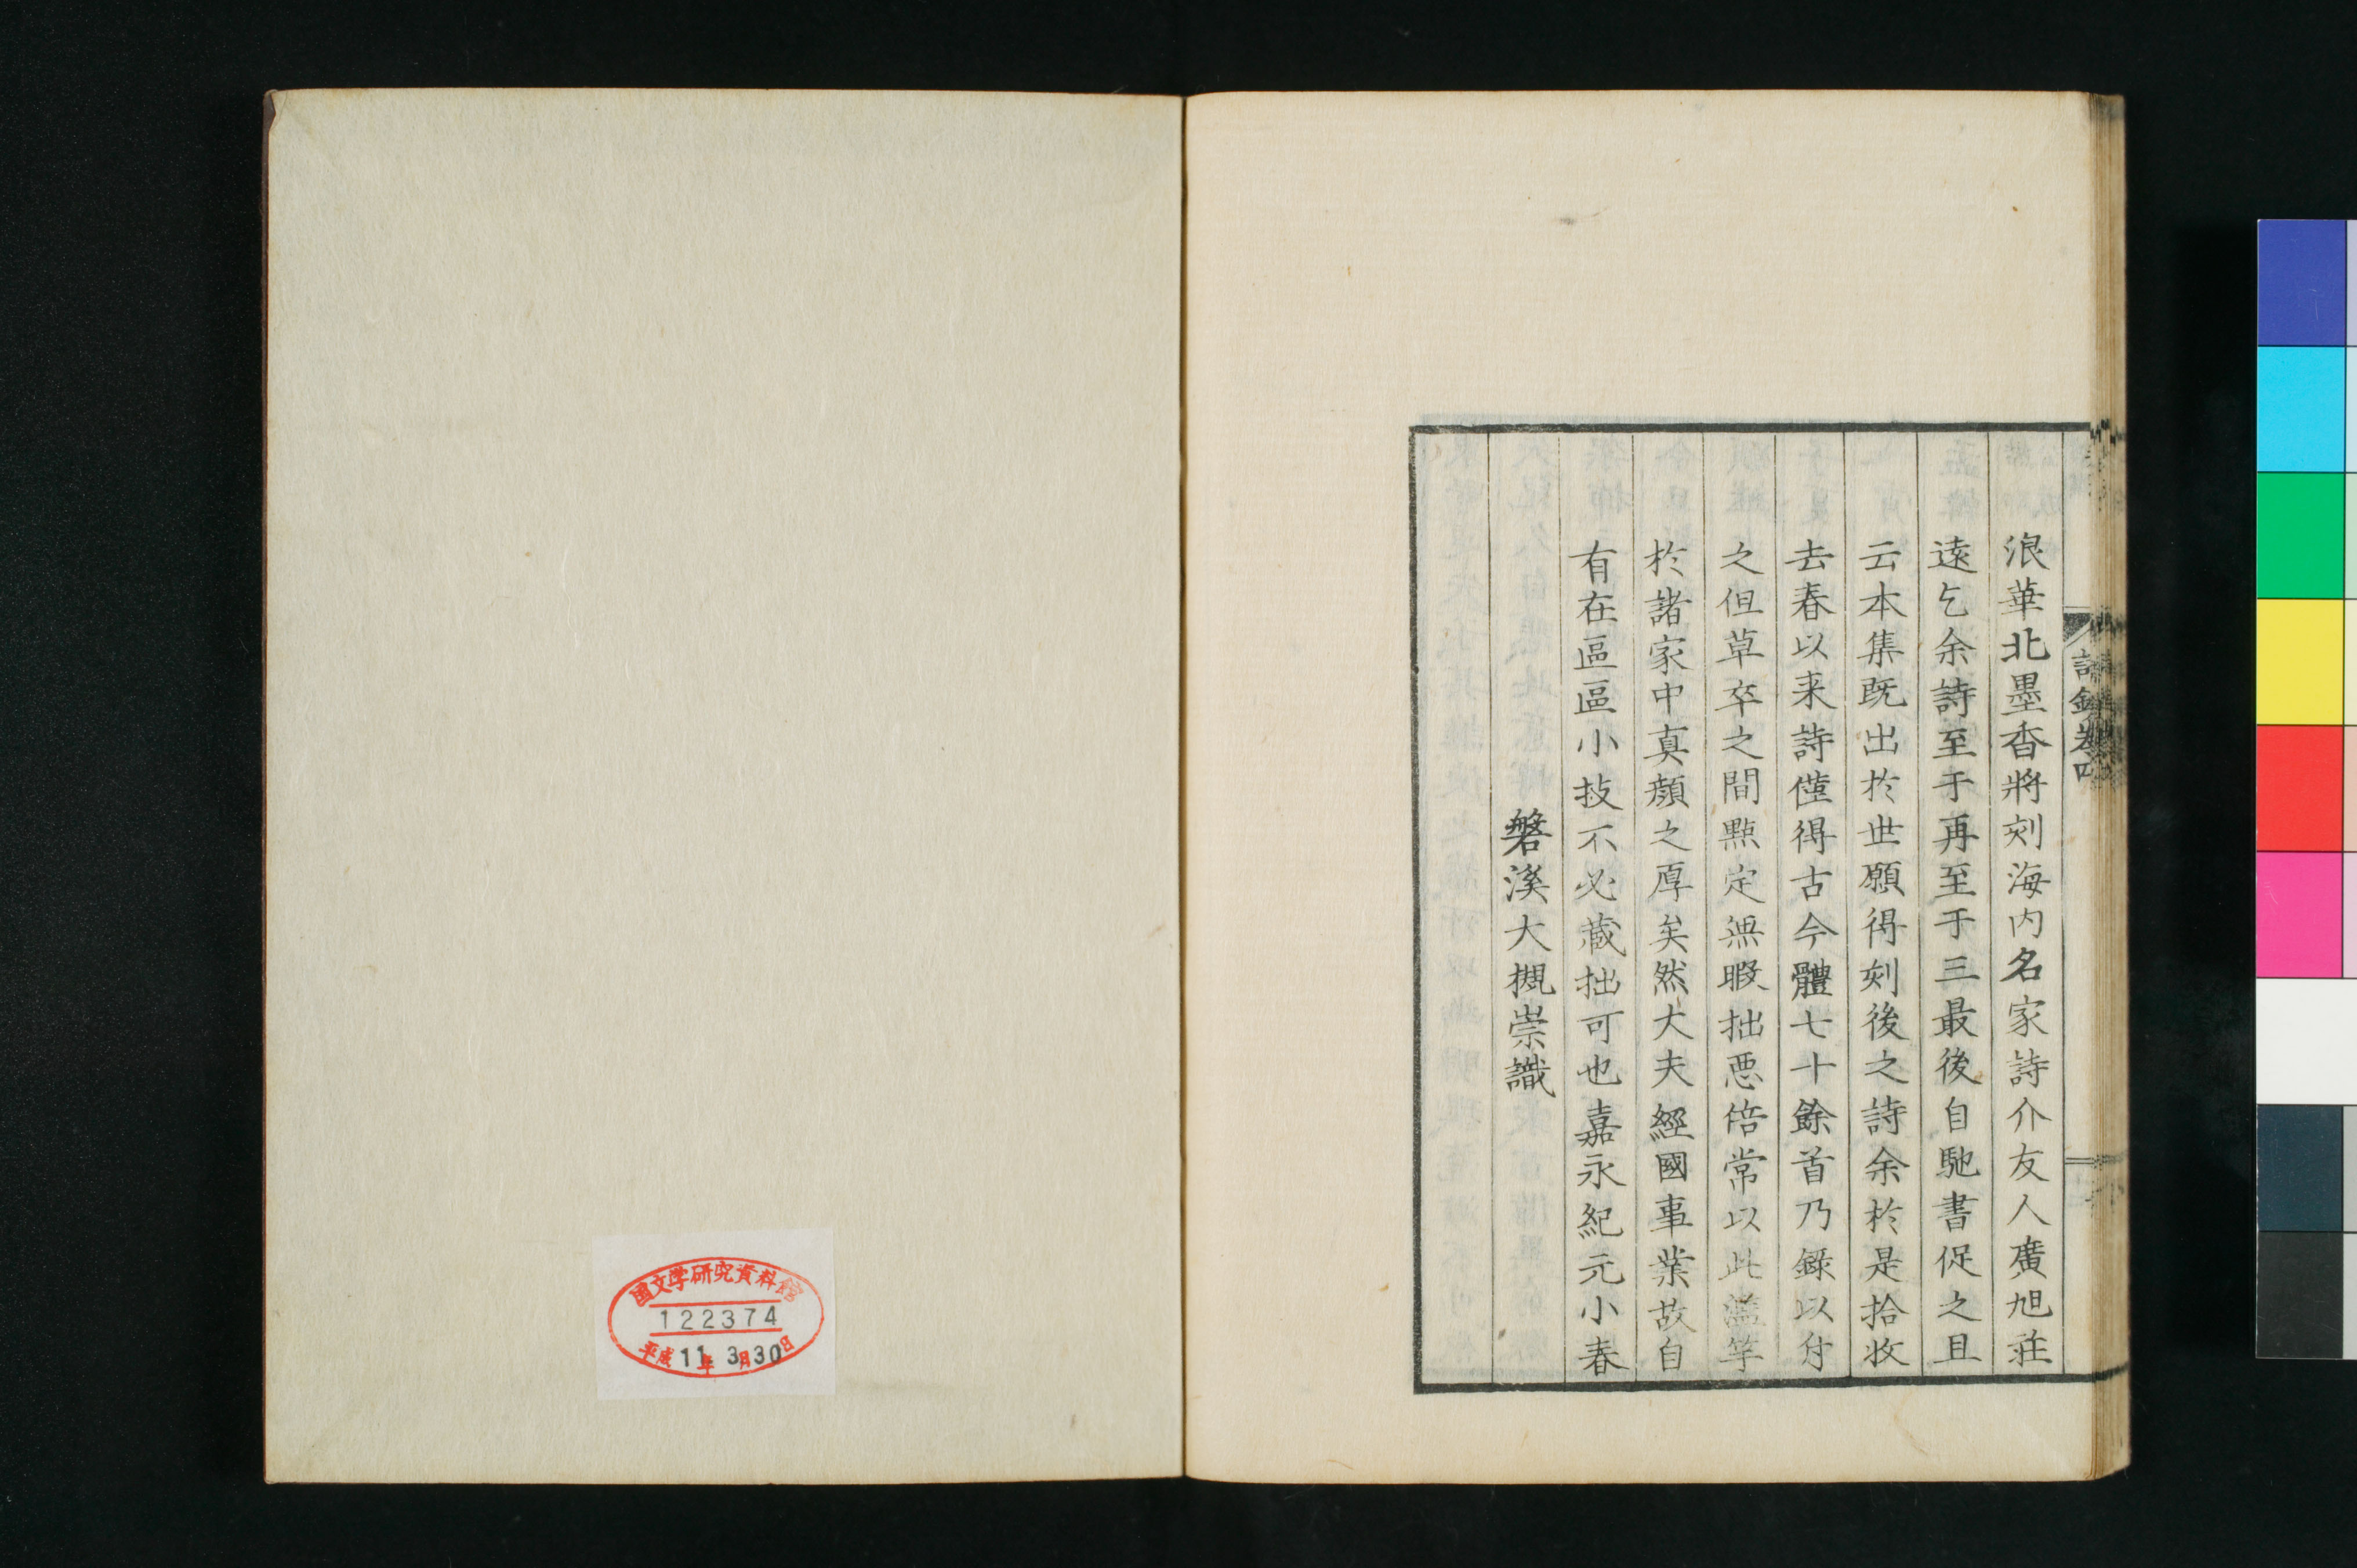 浪華北墨香將刻海内名家詩介友人廣旭莊
遠乞余詩至于再至于三最後自馳書促之且
云本集既出於世願得刻後之詩余於是拾收
去春以来詩僅得古今體七十餘首乃録以付
之但草卒之間點定無暇拙悪倍常以此濫竽
於諸家中真顔之厚矣然大夫經國事業故自
有在區區小技不必蔵拙可也嘉永紀元小春
磐溪大槻崇識
詩鈔卷四
国文学研究資料館
122374
平成11年3月30日